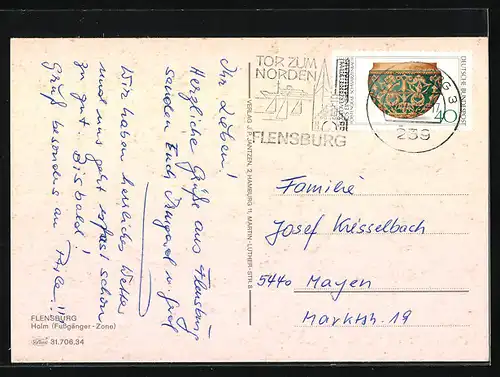 Ihr Lieben!
Herzliche Grüße aus Flensburg
senden Euch Irmgard u. Gred
Wir haben herrliches Wetter
und uns geht es fast schon
zu gut!
Bis bald!
Gruß besonders an
FLENSBURG
Holm (Fußgänger-Zone)
31.706.34
VERLAG J. JANTZEN, 2 HAMBURG 11, MARTIN-LUTHER-STR. 8
TOR ZUM
NORDEN
FLENSBURG
DEUTSCHE BUNDESPOST
40
239
Familie
Josef Krisselbach
5440 Mayen
Marktstr. 19